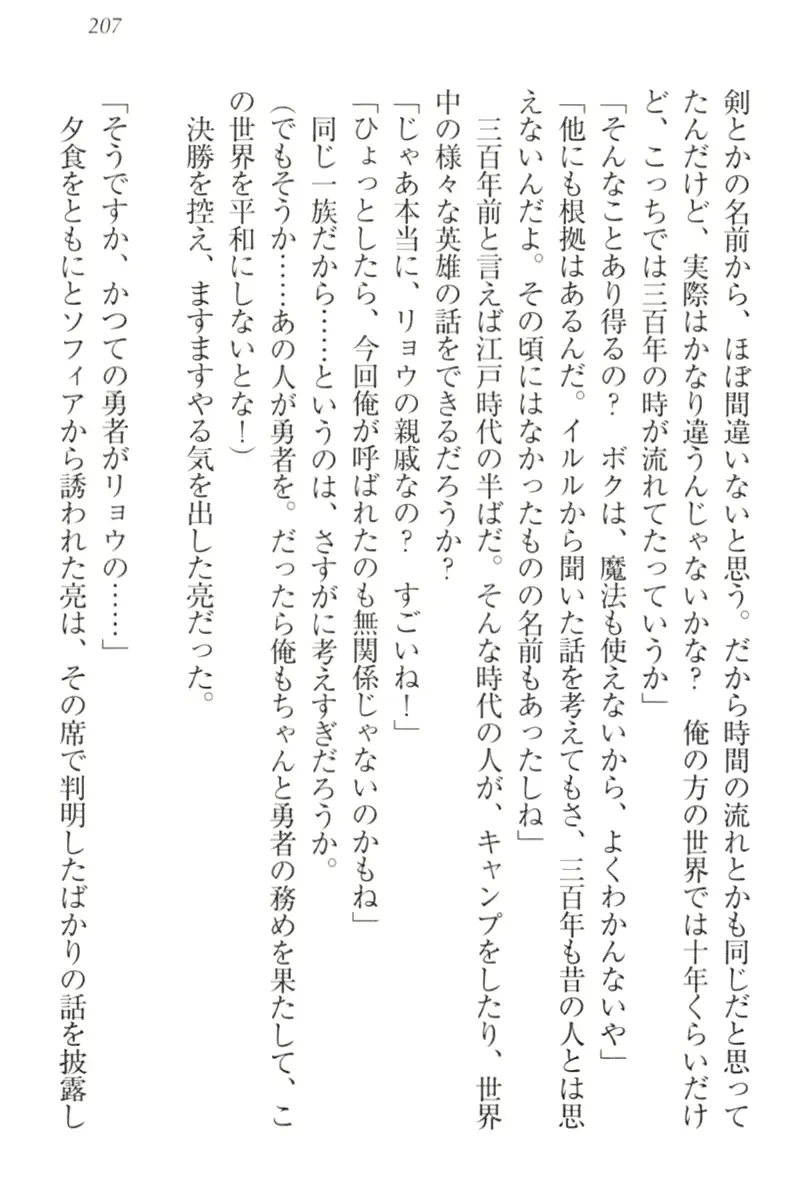 207
剣とかの名前から、ほぼ間違いないと思う。だから時間の流れとかも同じだと思って
たんだけど、実際はかなり違うんじゃないかな？　俺の方の世界では十年くらいだけ
ど、こっちでは三百年の時が流れてたっていうか」
「そんなことあり得るの？　ボクは、魔法も使えないから、よくわかんないや」
「他にも根拠はあるんだ。イルルから聞いた話を考えてもさ、三百年も昔の人とは思
えないんだよ。その頃にはなかったものの名前もあったしね」
三百年前と言えば江戸時代の半ばだ。そんな時代の人が、キャンプをしたり、世界
中の様々な英雄の話をできるだろうか？
「じゃあ本当に、リョウの親戚なの？　すごいね！」
「ひょっとしたら、今回俺が呼ばれたのも無関係じゃないのかもね」
同じ一族だから……というのは、さすがに考えすぎだろうか。
（でもそうか……あの人が勇者を。だったら俺もちゃんと勇者の務めを果たして、こ
の世界を平和にしないとな！）
決勝を控え、ますますやる気を出した亮だった。
「そうですか、かつての勇者がリョウの……」
夕食をともにとソフィアから誘われた亮は、その席で判明したばかりの話を披露し